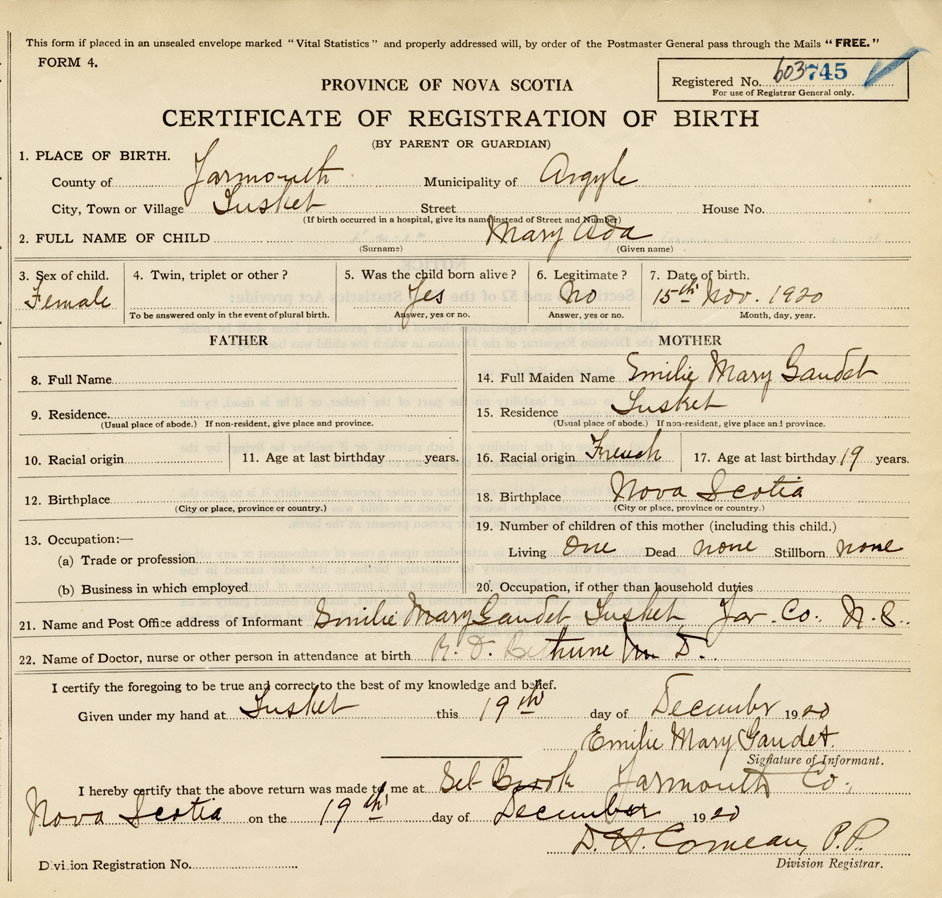 This form if placed in an unsealed envelope marked "Vital Statistics" and properly addressed will, by order of the Postmaster General pass through the Mails "FREE."
FORM 4.
Registered No. 603745
For use of Registrar General only.
PROVINCE OF NOVA SCOTIA
CERTIFICATE OF REGISTRATION OF BIRTH
(BY PARENT OR GUARDIAN)
1. PLACE OF BIRTH.
County of Yarmouth Municipality of Argyle
City, Town or Village Tusket Street House No.
(If birth occurred in a hospital, give its name instead of Street and Number)
2. FULL NAME OF CHILD Mary Ada
(Surname) (Given name)
3. Sex of child. 4. Twin, triplet or other? 5. Was the child born alive? 6. Legitimate? 7. Date of birth.
Female Yes No 15th Nov. 1920
To be answered only in the event of plural birth. Answer, yes or no. Answer, yes or no. Month, day, year.
FATHER MOTHER
8. Full Name 14. Full Maiden Name Emilie Mary Gaudet
9. Residence. 15. Residence Tusket
(Usual place of abode.) If non-resident, give place and province. (Usual place of abode.) If non-resident, give place and province.
10. Racial origin 11. Age at last birthday years. 16. Racial origin French 17. Age at last birthday 19 years.
12. Birthplace 18. Birthplace Nova Scotia
(City or place, province or country.) (City or place, province or country.)
13. Occupation:— 19. Number of children of this mother (including this child.)
(a) Trade or profession Living One Dead none Stillborn none
(b) Business in which employed 20. Occupation, if other than household duties
21. Name and Post Office address of Informant Emilie Mary Gaudet Tusket Yar. Co. N.S.
22. Name of Doctor, nurse or other person in attendance at birth Bethune M.D.
I certify the foregoing to be true and correct to the best of my knowledge and belief.
Given under my hand at Tusket this 19th day of December 1920
Emilie Mary Gaudet.
Signature of Informant.
I hereby certify that the above return was made to me at Brook Yarmouth Co.
Nova Scotia on the 19th day of December 1920
D. H. Comeau, P.P.
Division Registration No. Division Registrar.